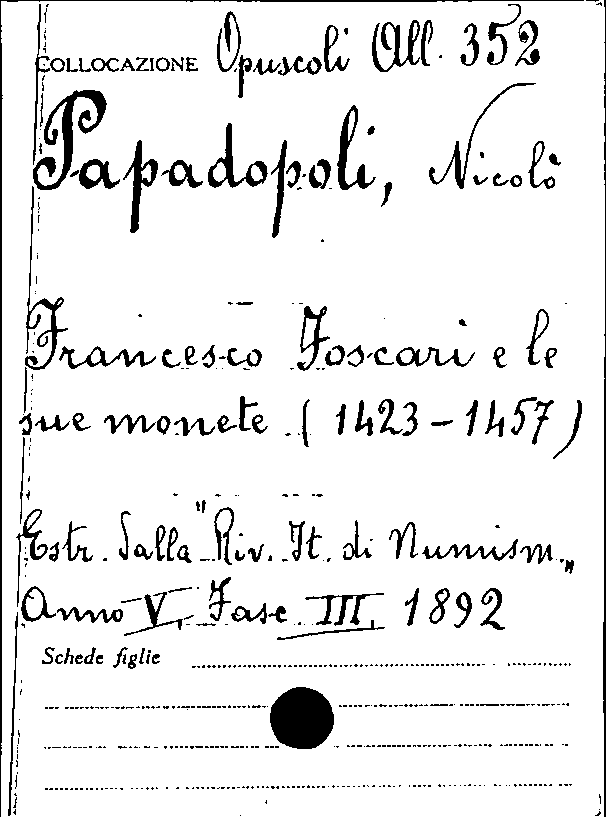 COLLOCAZIONE Opuscoli All. 352
Papadopoli, Nicolò
Francesco Foscari e le
sue monete (1423-1457)
Estr. dalla "Riv. It. di Numism."
Anno V, Fasc III, 1892
Schede figlie